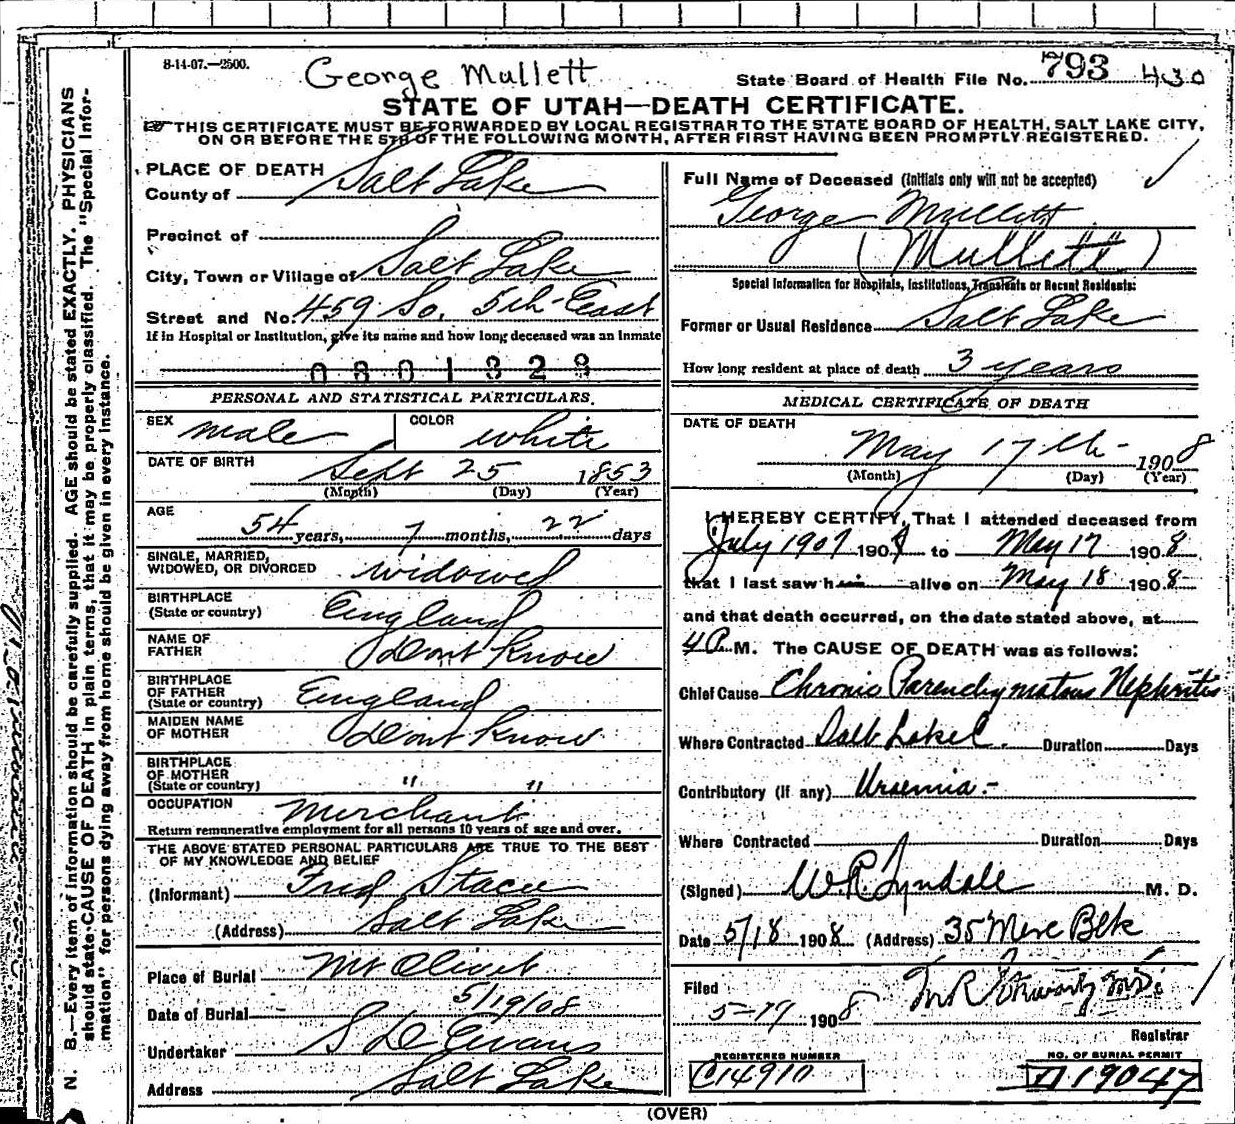 8-14-07.—2500.
George Mullett
State Board of Health File No. 793 430
STATE OF UTAH—DEATH CERTIFICATE.
THIS CERTIFICATE MUST BE FORWARDED BY LOCAL REGISTRAR TO THE STATE BOARD OF HEALTH, SALT LAKE CITY,
ON OR BEFORE THE 5TH OF THE FOLLOWING MONTH, AFTER FIRST HAVING BEEN PROMPTLY REGISTERED.
N. B.—Every item of information should be carefully supplied. AGE should be stated EXACTLY. PHYSICIANS
should state CAUSE OF DEATH in plain terms, that it may be properly classified. The "Special Infor-
mation" for persons dying away from home should be given in every instance.
PLACE OF DEATH
County of Salt Lake
Precinct of
City, Town or Village of Salt Lake
Street and No. 459 So. 5th East
If in Hospital or Institution, give its name and how long deceased was an inmate
0801328
PERSONAL AND STATISTICAL PARTICULARS.
SEX male COLOR white
DATE OF BIRTH
Sept 25 1853
(Month) (Day) (Year)
AGE
54 years, 7 months, 22 days
SINGLE, MARRIED,
WIDOWED, OR DIVORCED widowed
BIRTHPLACE
(State or country) England
NAME OF
FATHER Dont Know
BIRTHPLACE
OF FATHER
(State or country) England
MAIDEN NAME
OF MOTHER Dont Know
BIRTHPLACE
OF MOTHER
(State or country) " "
OCCUPATION Merchant
Return remunerative employment for all persons 10 years of age and over.
THE ABOVE STATED PERSONAL PARTICULARS ARE TRUE TO THE BEST
OF MY KNOWLEDGE AND BELIEF
(Informant) Fred Stace
(Address) Salt Lake
Place of Burial Mt Olivet
Date of Burial 5/19/08
Undertaker S D Evans
Address Salt Lake
Full Name of Deceased (Initials only will not be accepted)
George Mullett
(Mullett)
Special Information for Hospitals, Institutions, Transients or Recent Residents:
Former or Usual Residence Salt Lake
How long resident at place of death 3 years
MEDICAL CERTIFICATE OF DEATH
DATE OF DEATH
May 17th 1908
(Month) (Day) (Year)
I HEREBY CERTIFY, That I attended deceased from
July 1907 190 to May 17 1908
that I last saw him alive on May 18 1908
and that death occurred, on the date stated above, at
4 P. M. The CAUSE OF DEATH was as follows:
Chief Cause Chronic Parenchymatous Nephritis
Where Contracted Salt Lake C. Duration Days
Contributory (if any) Uraemia.-
Where Contracted Duration Days
(Signed) W.R. Tyndale M. D.
Date 5/18 1908 (Address) 35 Merc Blk
Filed
5-19 1908
Registrar
REGISTERED NUMBER
C14910
NO. OF BURIAL PERMIT
A19047
(OVER)